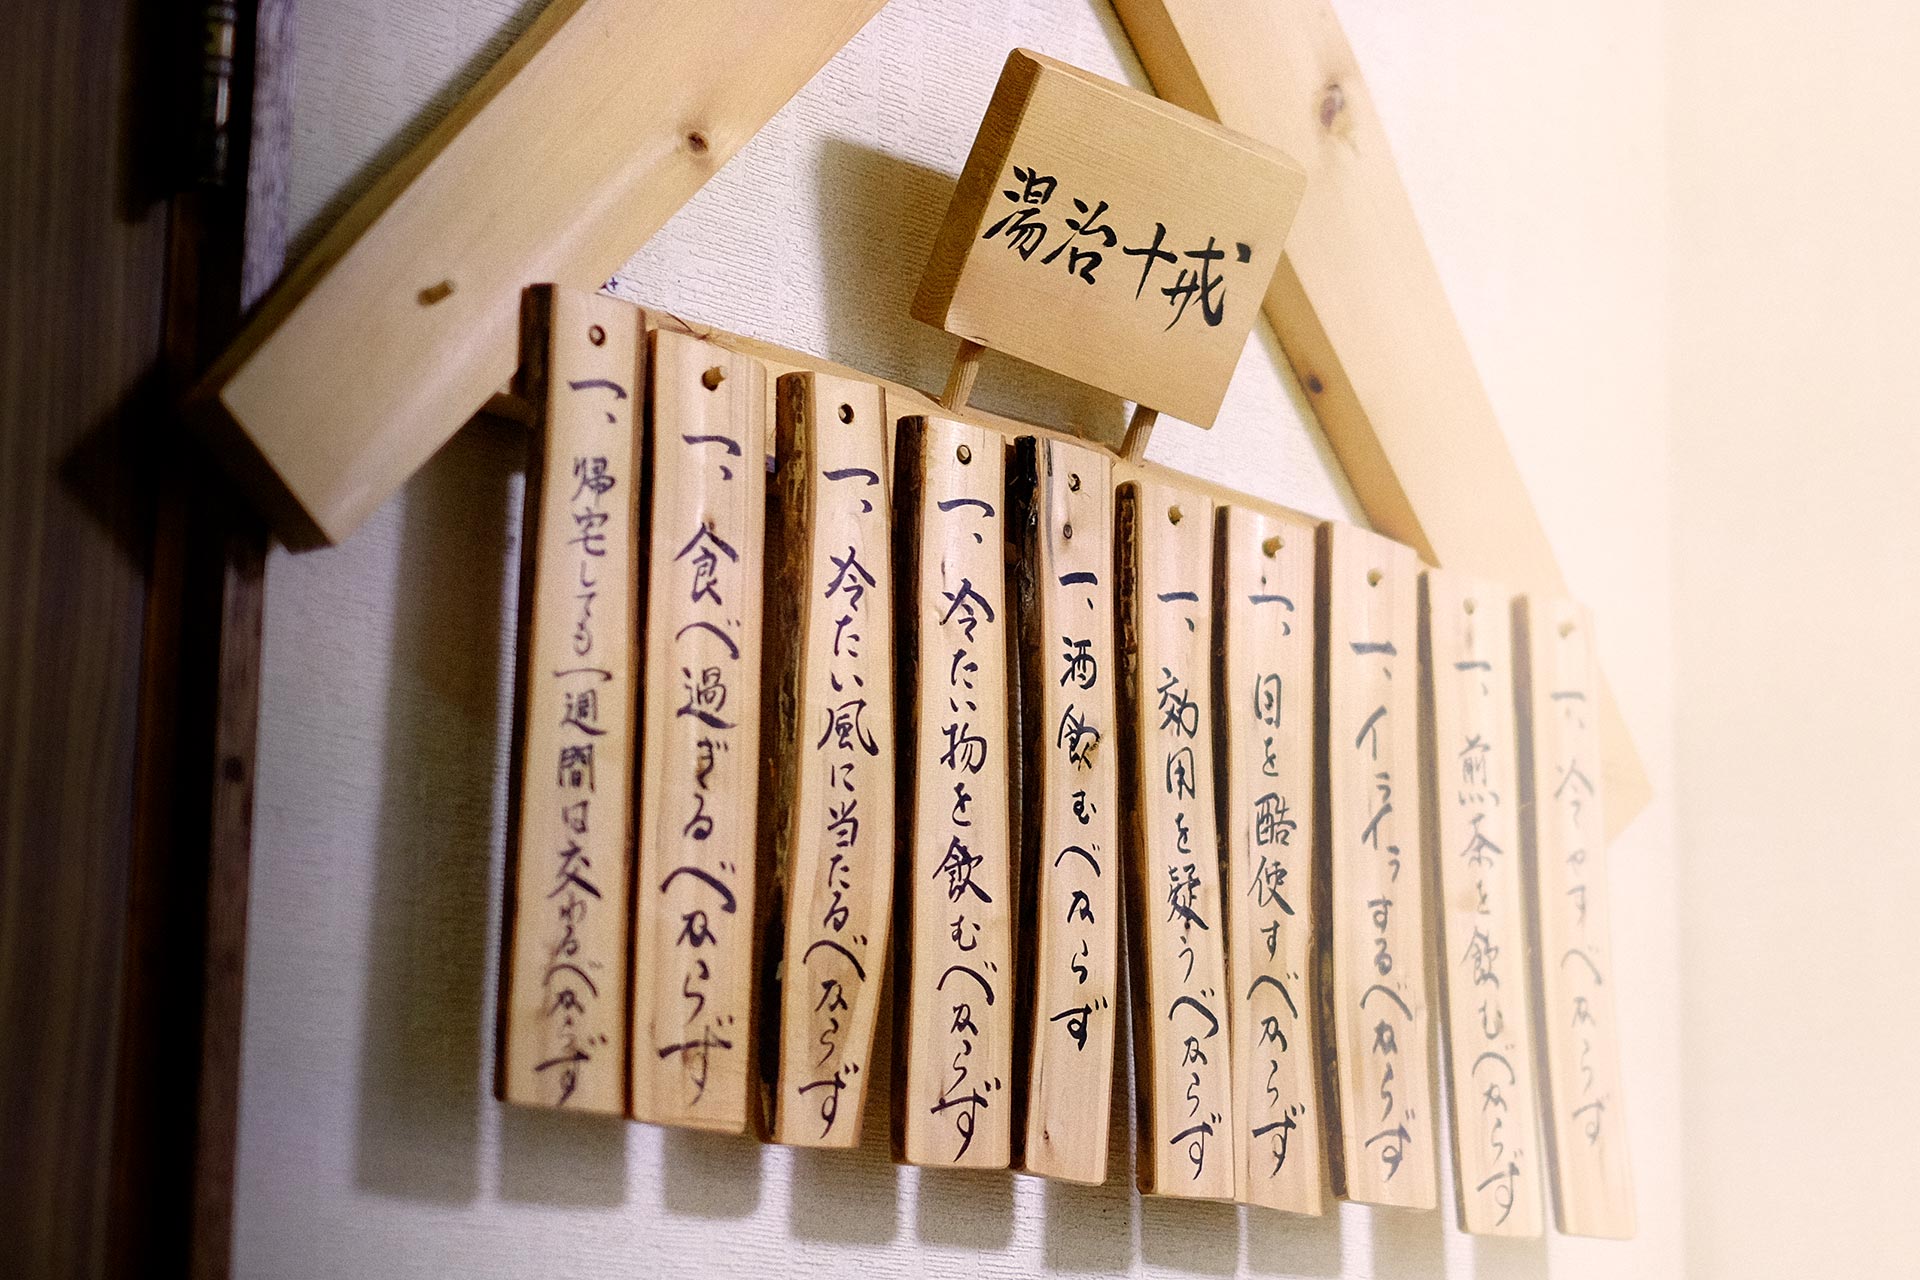 湯治十戒
一、冷やすべからず
一、煎茶を飲むべからず
一、イライラするべからず
一、目を酷使すべからず
一、効用を疑うべからず
一、酒飲むべからず
一、冷たい物を飲むべからず
一、冷たい風に当たるべからず
一、食べ過ぎるべからず
一、帰宅しても一週間は交わるべからず